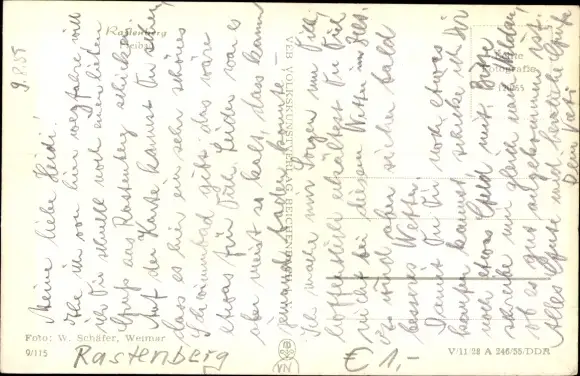 9.8.55
Meine liebe Heidi!
Ehe ich von hier wegfahre, will
ich Dir schnell noch einen lieben
Gruß aus Rastenberg schicken.
Auf der Karte kannst Du sehen,
dass es hier ein sehr schönes
Schwimmbad gibt; das wäre
etwas für Dich. Leider war es
aber meist so kalt, dass kaum
jemand baden konnte. —
Ich mache mir Sorgen um Dich,
hoffentlich erkältest Du Dich
nicht bei diesem Wetter im Zelt.
Es wird aber sicher bald
besseres Wetter.
Damit Du Dir noch etwas
kaufen kannst, schicke ich Dir
noch etwas Geld mit. Bitte
schreibe mir gleich nach Leiden,
ob es gut angekommen ist.
Alles Gute und herzliche Grüße
Dein Vati
Rastenberg
VEB VOLKSKUNSTVERLAG REICHENBACH
Echte
Fotografie
Foto: W. Schäfer, Weimar
9/115
V/11/28 A 246/55/DDR
Rastenberg
VN
€ 1,-